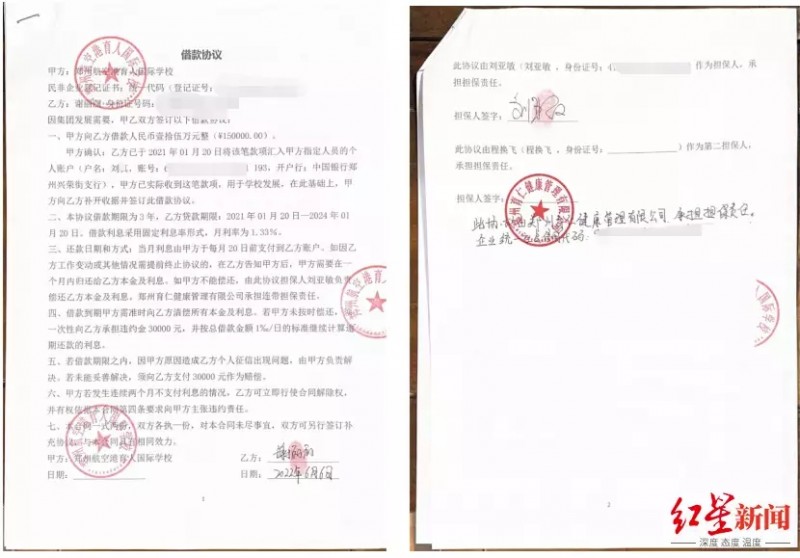 借款协议
甲方:郑州航空港育人国际学校
民非企业登记证书:统一代码(登记证号:
乙方:谢 身份证号码:
因集团发展需要,甲乙双方签订以下借款协议:
一、甲方向乙方借款人民币壹拾伍万元整(¥150000.00)。
甲方确认:乙方已于 2021 年 01 月 20 日将该笔款项汇入甲方指定人员的个
人账户(户名:刘江,账号:6 193,开户行:中国银行郑
州兴荣街支行),甲方已实际收到这笔款项,用于学校发展,在此基础上,甲
方向乙方补开收据并签订此借款协议。
二、本协议借款期限为3年,乙方贷款期限:2021 年 01 月 20 日—2024 年 01
月 20 日。借款利息采用固定利息率形式,月利率为 1.33%。
三、还款日期和方式:当月利息由甲方于每月 20 日前支付到乙方账户。如因乙
方工作变动或其他情况需提前终止协议的,在乙方告知甲方后,甲方需要在一
个月内归还给乙方本金及利息。如甲方不能偿还,由此协议担保人刘亚敏负责
偿还乙方本金及利息。郑州育仁健康管理有限公司承担连带担保责任。
四、借款到期甲方需准时向乙方清偿所有本金及利息。若甲方未按时偿还,一
次性向乙方承担违约金 30000 元,并按总借款金额 1‰/日的标准继续计算逾
期还款的利息。
五、若借款期限之内,因甲方原因造成乙方个人征信出现问题,由甲方负责解
决。若未能妥善解决,须向乙方支付 30000 元作为赔偿。
六、甲方若发生连续两个月不支付利息的情况,乙方可立即行使合同解除权,
并有权依据本合同第四条要求向甲方主张违约责任。
七、本合同一式两份,双方各执一份,对本合同未尽事宜,双方可另行签订补
充协议,与本合同具有相同效力。
甲方:郑州航空港育人国际学校 乙方:
日期: 日期:2022年6月6日
1
此协议由刘亚敏(刘亚敏,身份证号:4 )作为担保人,承
担担保责任。
担保人签字:
此协议由程换飞(程换飞,身份证号: )作为第二担保人,
承担担保责任。
担保人签字:
郑州育仁健康管理有限公司
健康管理有限公司承担担保责任。
企业统一 代码:
2
红星新闻
深度 态度 温度